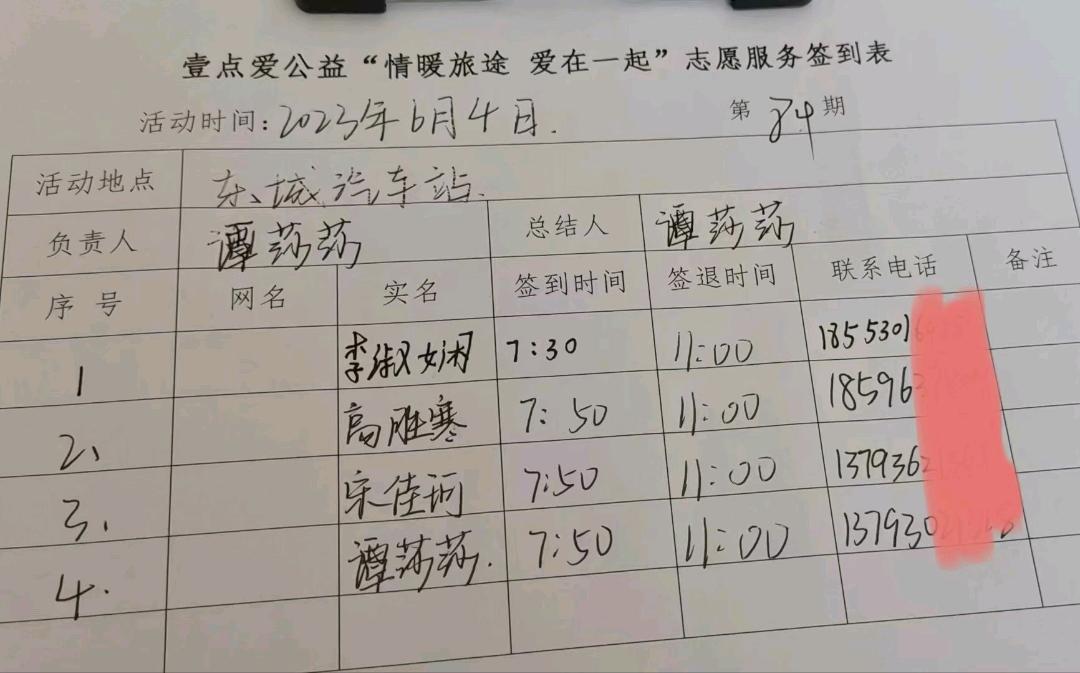 壹点爱公益“情暖旅途 爱在一起”志愿服务签到表
活动时间：2023年6月4日. 第 84 期
活动地点 东城汽车站.
负责人 谭莎莎 总结人 谭莎莎
序号 网名 实名 签到时间 签退时间 联系电话 备注
1 李淑娴 7:30 11:00 1855301
2、 高胜寒 7:50 11:00 18596
3. 宋佳珂 7:50 11:00 1379362
4. 谭莎莎. 7:50 11:00 137930